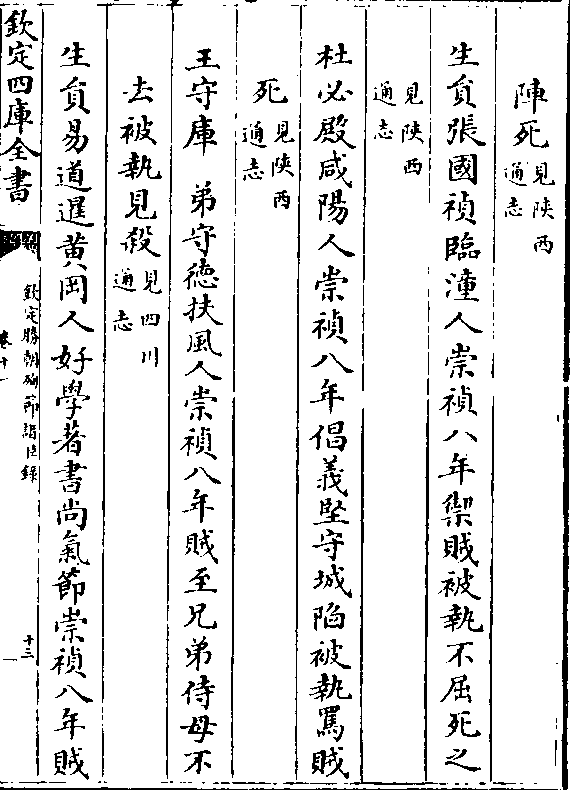 陣死見陝西通志
生員張國禎臨潼人崇禎八年禦賊被執不屈死之
見陝西通志
杜必殿咸陽人崇禎八年倡義堅守城陷被執罵賊
死見陝西通志
王守庫 弟守德扶風人崇禎八年賊至兄弟侍母不
去被執見殺見四川通志
生員易道暹黄岡人好學著書尚氣節崇禎八年賊
欽定四庫全書
欽定勝朝殉節諸臣錄
卷十一
十三